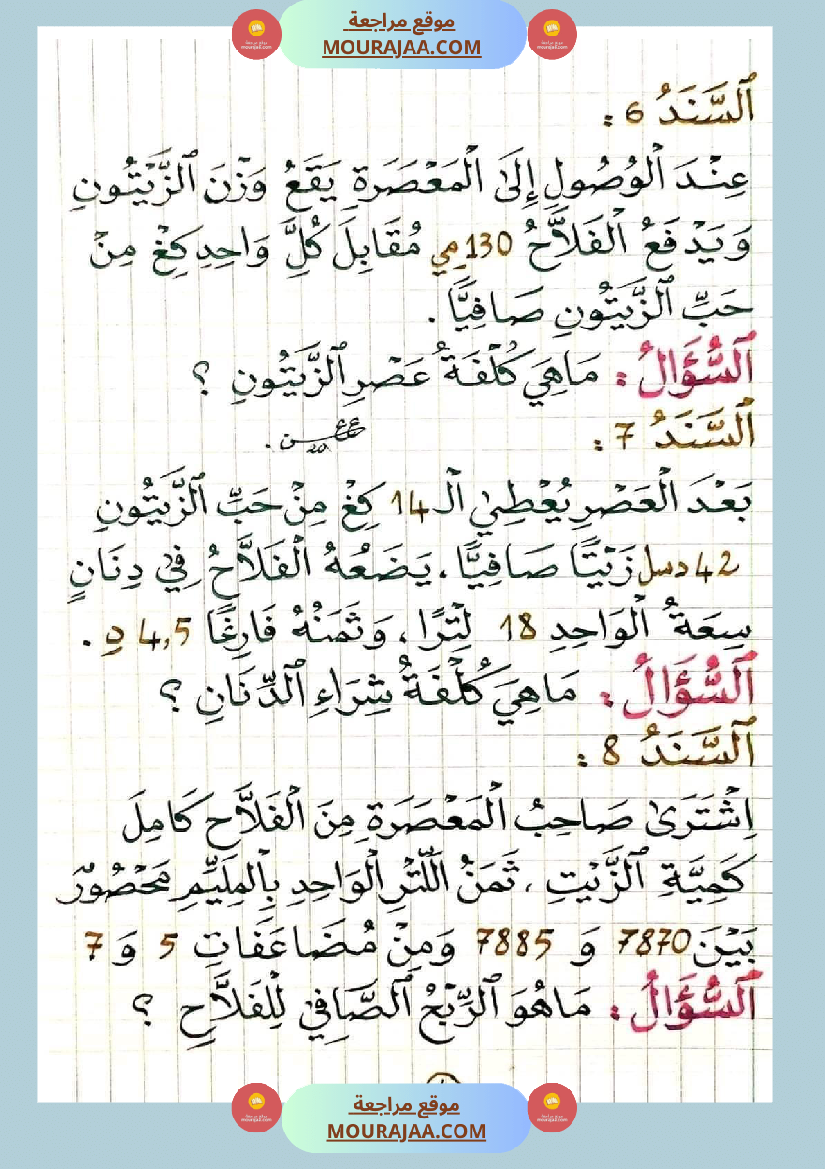 موقع مراجعة
MOURAJAA.COM
اَلسَّنَدُ 6 :
عِنْدَ الْوُصُولِ إِلَى الْمَعْصَرَةِ يَقَعُ وَزْنَ الزَّيْتُونِ
وَيَدْفَعُ الْفَلاَّحُ 130 مِي مُقَابِلَ كُلَّ وَاحِدِ كِغْ مِنْ
حَبِّ الزَّيْتُونِ صَافِيًّا .
اَلسُّؤَالُ : مَاهِيَ كُلْفَةُ عَصْرِ الزَّيْتُونِ ؟
اَلسَّنَدُ 7 :
بَعْدَ الْعَصْرِ يُعْطِي الْـ 14 كِغْ مِنْ حَبِّ الزَّيْتُونِ
42 دسل زَيْتًا صَافِيًّا ، يَضَعُهُ الْفَلاَّحُ فِي دِنَانٍ
سِعَةُ الْوَاحِدِ 18 لِتْرًا ، وَثَمَنُهُ فَارِغًا 4,5 دِ .
اَلسُّؤَالُ : مَاهِيَ كُلْفَةُ شِرَاءِ الدِّنَانِ ؟
اَلسَّنَدُ 8 :
اِشْتَرَى صَاحِبُ الْمَعْصَرَةِ مِنَ الْفَلاَّحِ كَامِلَ
كَمِيَّةِ الزَّيْتِ ، ثَمَنُ اللِّتْرِ الْوَاحِدِ بِالْمِلِيِّمِ مَحْصُورٌ
بَيْنَ 7870 وَ 7885 وَمِنْ مُضَاعَفَاتِ 5 وَ 7
اَلسُّؤَالُ : مَاهُوَ الرِّبْحُ الصَّافِي لِلْفَلاَّحِ ؟
موقع مراجعة
MOURAJAA.COM